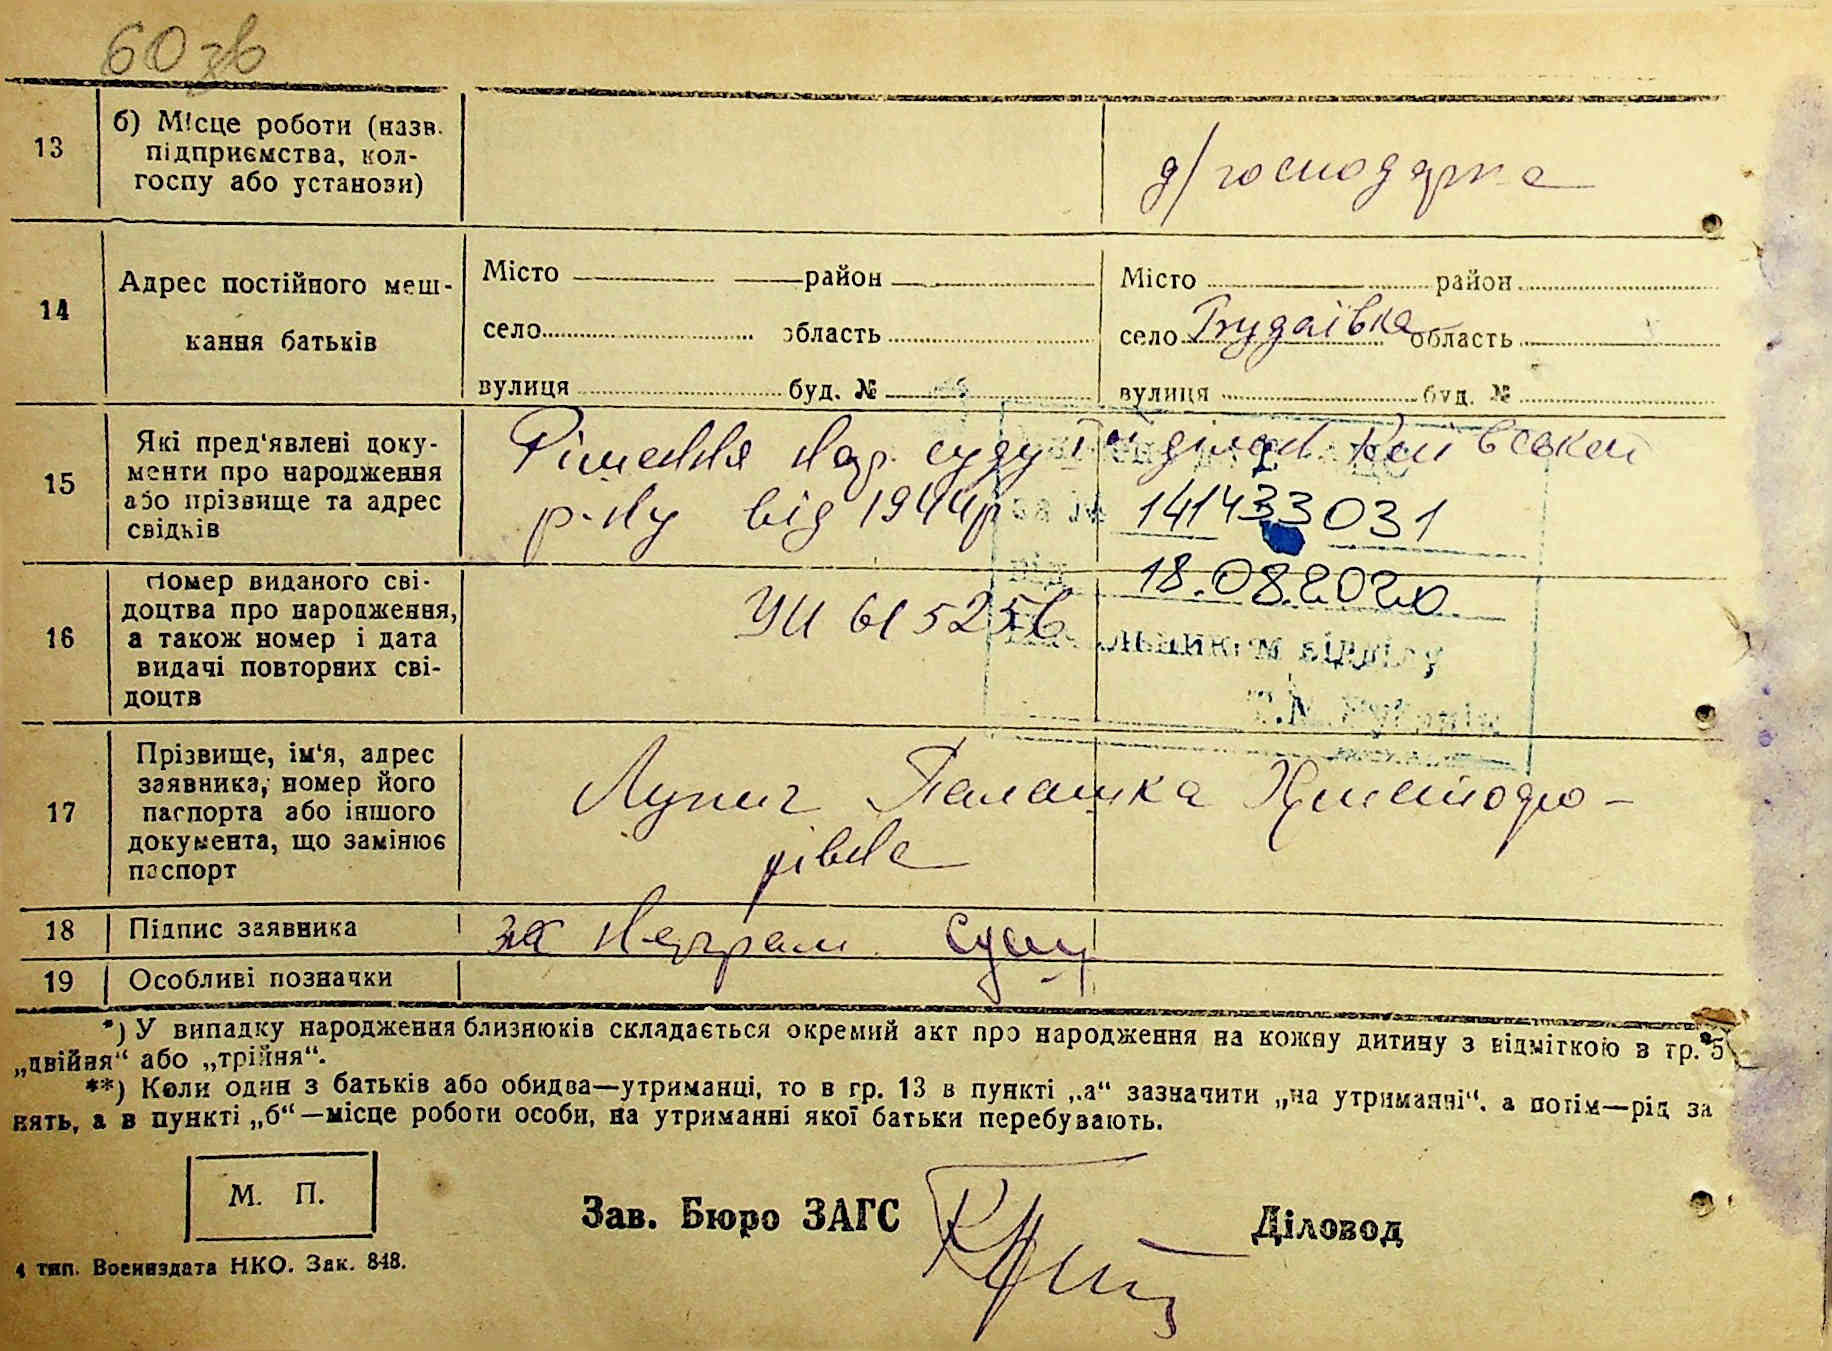 60 зв
13 б) Місце роботи (назв. підприємства, колгоспу або установи) д/господарка
14 Адрес постійного меш-
кання батьків
Місто район Місто район
село область село область
вулиця буд. № вулиця буд. №
15 Які пред'явлені доку-
менти про народження
або прізвище та адрес
свідків
Рішення нар. суду
р-ну від 1944р
141433031
18.08.2020
16 Номер виданого сві-
доцтва про народження,
а також номер і дата
видачі повторних сві-
доцтв
УИ 615256
відділу
17 Прізвище, ім'я, адрес
заявника, номер його
паспорта або іншого
документа, що замінює
паспорт
Палашка
18 Підпис заявника за неграм.
19 Особливі позначки
*) У випадку народження близнюків складається окремий акт про народження на кожну дитину з відміткою в гр. 5
„двійня“ або „трійня“.
**) Коли один з батьків або обидва—утриманці, то в гр. 13 в пункті „а“ зазначити „на утриманні“, а потім—рід за
нять, а в пункті „б“—місце роботи особи, на утриманні якої батьки перебувають.
М. П.
Зав. Бюро ЗАГС Діловод
4 тип. Воениздата НКО. Зак. 848.